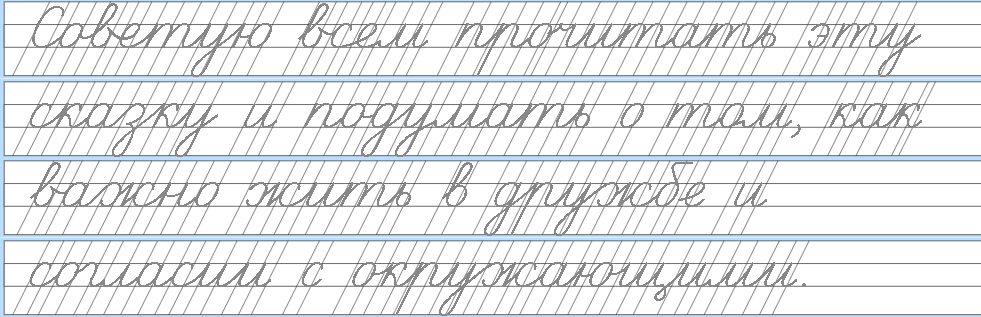 Советую всем прочитать эту
сказку и подумать о том, как
важно жить в дружбе и
согласии с окружающими.